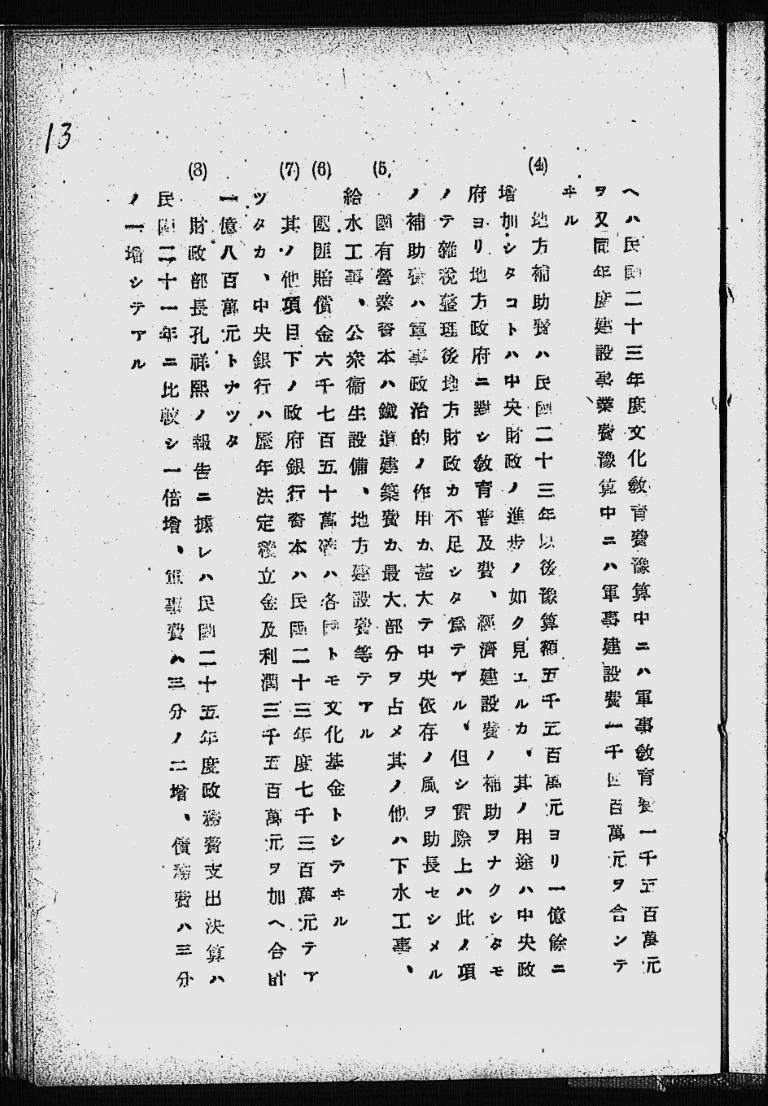 13
ヘハ民國二十三年度文化敎育費豫算中ニハ軍事敎育費一千五百萬元
ヲ又同年度建設事業費豫算中ニハ軍事建設費一千四百萬元ヲ含ンテ
ヰル
(4) 地方補助費ハ民國二十三年以後豫算額五千五百萬元ヨリ一億餘ニ
增加シタコトハ中央財政ノ進步ノ如ク見エルカ、其ノ用途ハ中央政
府ヨリ地方政府ニ對シ敎育普及費、經濟建設費ノ補助ヲナクシタモ
ノテ雜稅整理後地方財政カ不足シタ爲テアル、但シ實際上ハ此ノ項
ノ補助費ハ軍事政治的ノ作用カ甚大テ中央依存ノ風ヲ助長セシメル
(5) 國有營業資本ハ鐵道建築費カ最大部分ヲ占メ其ノ他ハ下水工事、
給水工事、公衆衞生設備、地方建設費等テアル
(6) 團匪賠償金六千七百五十萬 ハ各國トモ文化基金トシテヰル
(7) 其ノ他項目下ノ政府銀行資本ハ民國二十三年度七千三百萬元テア
ツタカ、中央銀行ハ歷年法定積立金及利潤三千五百萬元ヲ加ヘ合計
一億八百萬元トナツタ
(8) 財政部長孔祥熙ノ報告ニ據レハ民國二十五年度政務費支出決算ハ
民國二十一年ニ比較シ一倍增、軍事費ハ三分ノ二增、債務費ハ三分
ノ一增シテアル